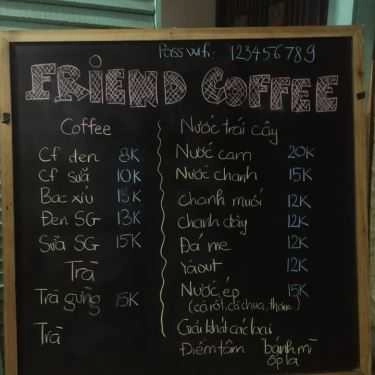 Pass wifi: 123456789
FRIEND COFFEE
Coffee
Cf đen 8K
Cf sữa 10K
Bạc xỉu 15K
Đen SG 13K
Sữa SG 15K
Trà
Trà gừng 15K
Trà
Nước trái cây
Nước cam 20K
Nước chanh 15K
Chanh muối 12K
Chanh dây 12K
Đá me 12K
Yaout 12K
Nước ép 15K
(cà rốt, cà chua, thơm)
Giải khát các loại
Điểm tâm bánh mì
ốp la